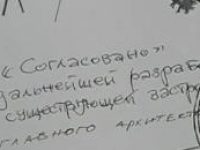 « Согласовано »
дальнейшей разраб
существующей застр
главного архитект